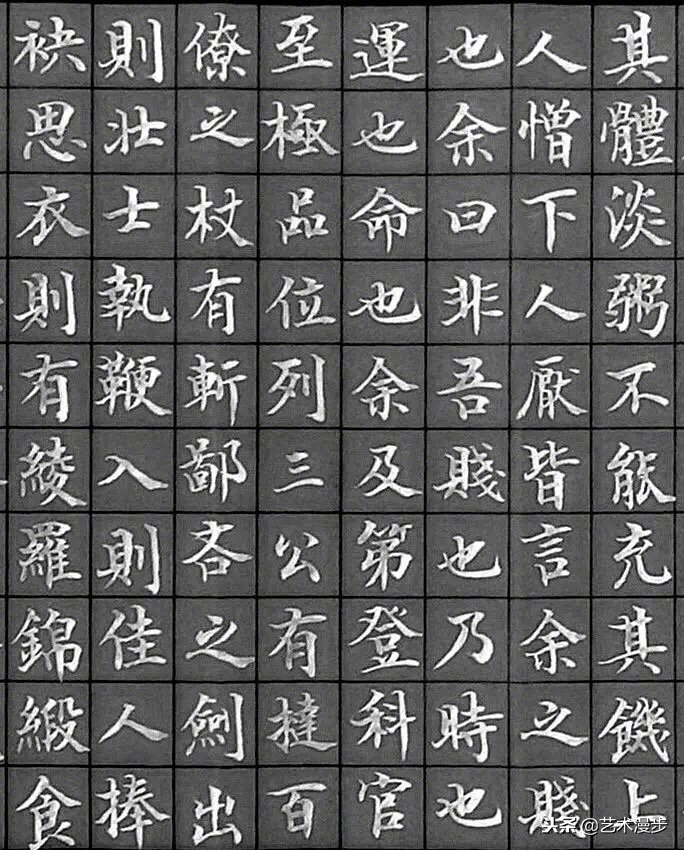 其體淡粥不能充其饑上
人憎下人厭皆言余之賤
也余曰非吾賤也乃時也
運也命也余及第登科官
至極品位列三公有撻百
僚之杖有斬鄙吝之劍出
則壯士執鞭入則佳人捧
袂思衣則有綾羅錦緞食
头条@艺术漫步